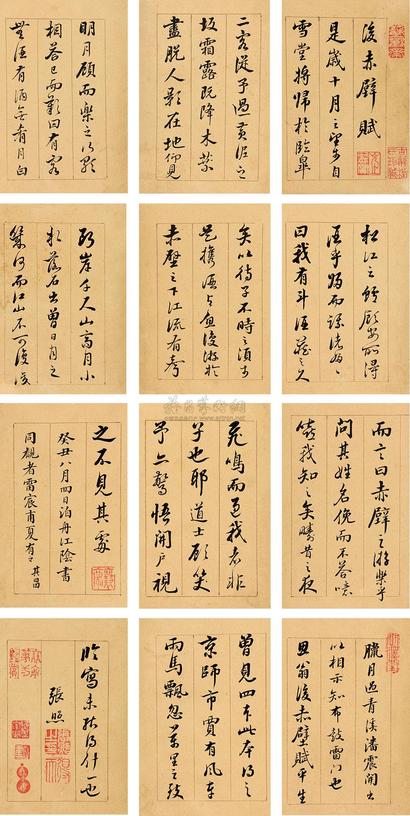 後赤壁賦
是歲十月之望步自
雪堂將歸於臨皋
二客從予過黃泥之
坂霜露既降木葉
盡脫人影在地仰見
明月顧而樂之行歌
相答已而歎曰有客
無酒有酒無肴月白
松江之鱸顧安所得
酒乎歸而謀諸婦婦
曰我有斗酒藏之久
矣以待子不時之須於
是攜酒與魚復游於
赤壁之下江流有聲
斷岸千尺山高月小
水落石出曾日月之
幾何而江山不可復識
而言曰赤壁之游樂乎
問其姓名俛而不答噫
嘻我知之矣疇昔之夜
飛鳴而過我者非
子也耶道士顧笑
予亦驚悟開戶視
之不見其處
癸丑八月四日泊舟江陰書
同觀者雷宸甫夏有之其昌
臘月過青溪潘震開出
以相示知布鼓雷門也
思翁後赤壁賦平生
曾見四本此本得之
京師市賈有風車
雨馬飄忽萬里之致
臨寫未能得什一也
張照